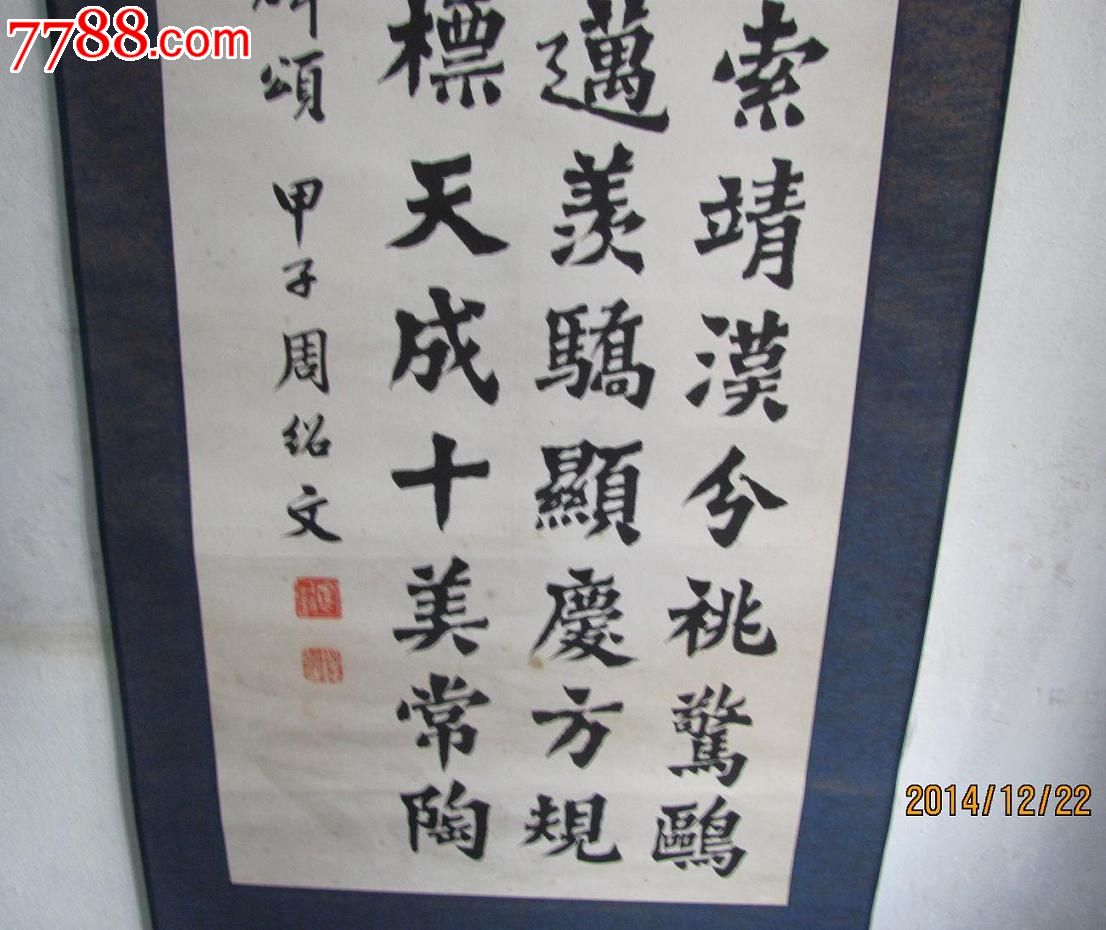 7788.com
索靖漠兮祧驚鷗
邁羨驕顯慶方規
標天成十美常陶
碑頌 甲子周紹文
2014/12/22